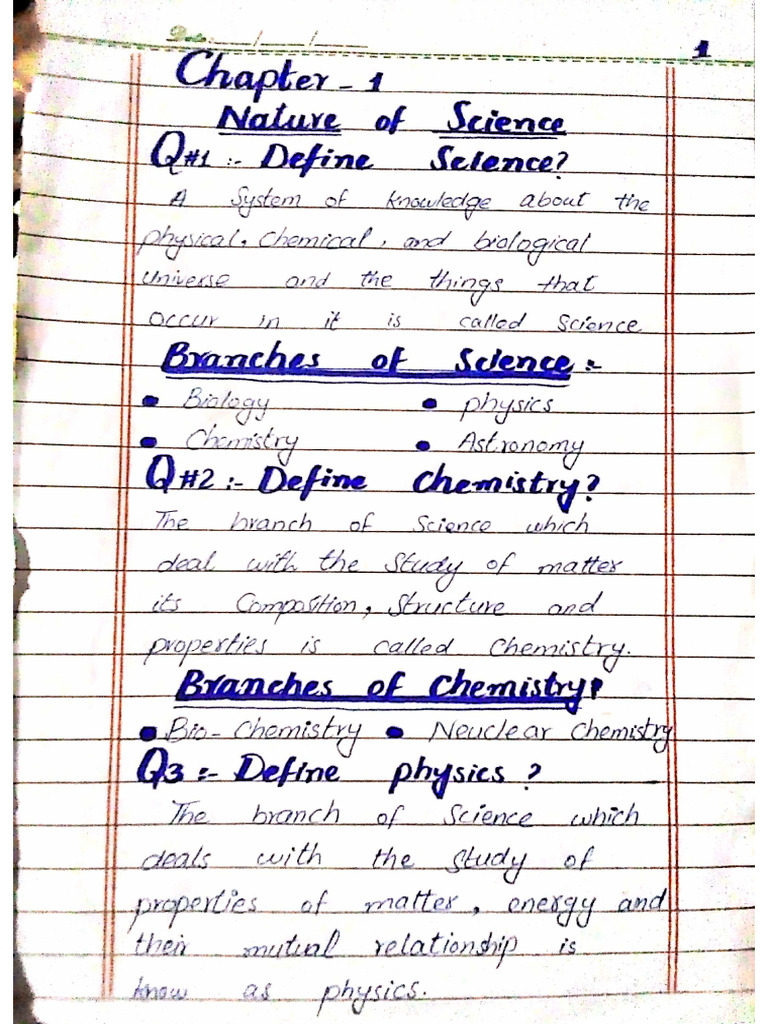 Date:___/___/___
1
Chapter - 1
Nature of Science
Q#1 :- Define Science?
A System of knowledge about the
physical, Chemical, and biological
universe and the things that
occur in it is called Science
Branches of Science :-
• Biology • physics
• Chemistry • Astronomy
Q#2 :- Define Chemistry?
The branch of Science which
deal with the Study of matter
its Composition, Structure and
properties is called Chemistry.
Branches of Chemistry:
• Bio-Chemistry • Neuclear Chemistry
Q3 :- Define physics ?
The branch of Science which
deals with the Study of
properties of matter, energy and
their mutual relationship is
know as physics.